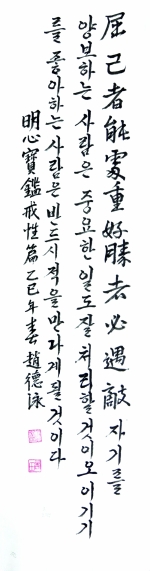 屈己者能處重好勝者必遇敵 자기를
양보하는 사람은 중요한 일도 잘 처리할 것이오 이기기
를 좋아하는 사람은 반드시 적을 만나게 될 것이다
明心寶鑑戒性篇 乙巳年春 趙德泳